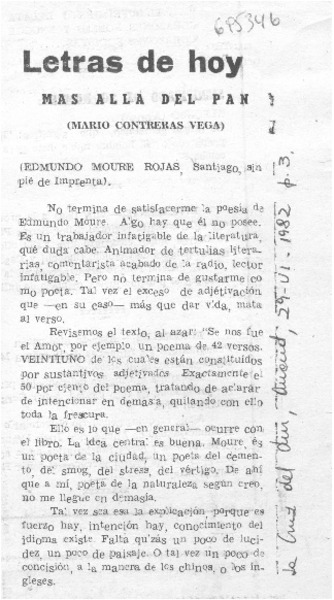 695346
Letras de hoy
MAS ALLA DEL PAN
(MARIO CONTRERAS VEGA)
(EDMUNDO MOURE ROJAS, Santiago, sin
pié de Imprenta).
No termina de satisfacerme la poesía de
Edmundo Moure. Algo hay que él no posee.
Es un trabajador infatigable de la literatura,
qué duda cabe. Animador de tertulias litera-
rias, comentarista acabado de la radio, lector
infatigable. Pero no termina de gustarme co
mo poeta. Tal vez el exceso de adjetivación
que —en su caso— más que dar vida, mata
al verso.
Revisemos el texto, al azar: "Se nos fue
el Amor, por ejemplo, un poema de 42 versos.
VEINTIUNO de los cuales están constituidos
por sustantivos adjetivados. Exactamente el
50 por ciento del poema, tratando de aclarar
de intencionar en demasía, quitando con ello
toda la frescura.
Ello es lo que —en general— ocurre con
el libro. La idea central es buena. Moure, es
un poeta de la ciudad, un poeta del cemento,
del smog, del stress, del vértigo. De ahí
que a mí, poeta de la naturaleza según creo,
no me llegue en demasía.
Tal vez sea esa la explicación porque es
fuerzo hay, intención hay, conocimiento del
idioma existe. Falta quizás un poco de luci-
dez, un poco de paisaje. O tal vez un poco de
concisión, a la manera de los chinos, o los in-
gleses.
La Cruz del Sur, Ancud, 29-VI-1982 p. 3.